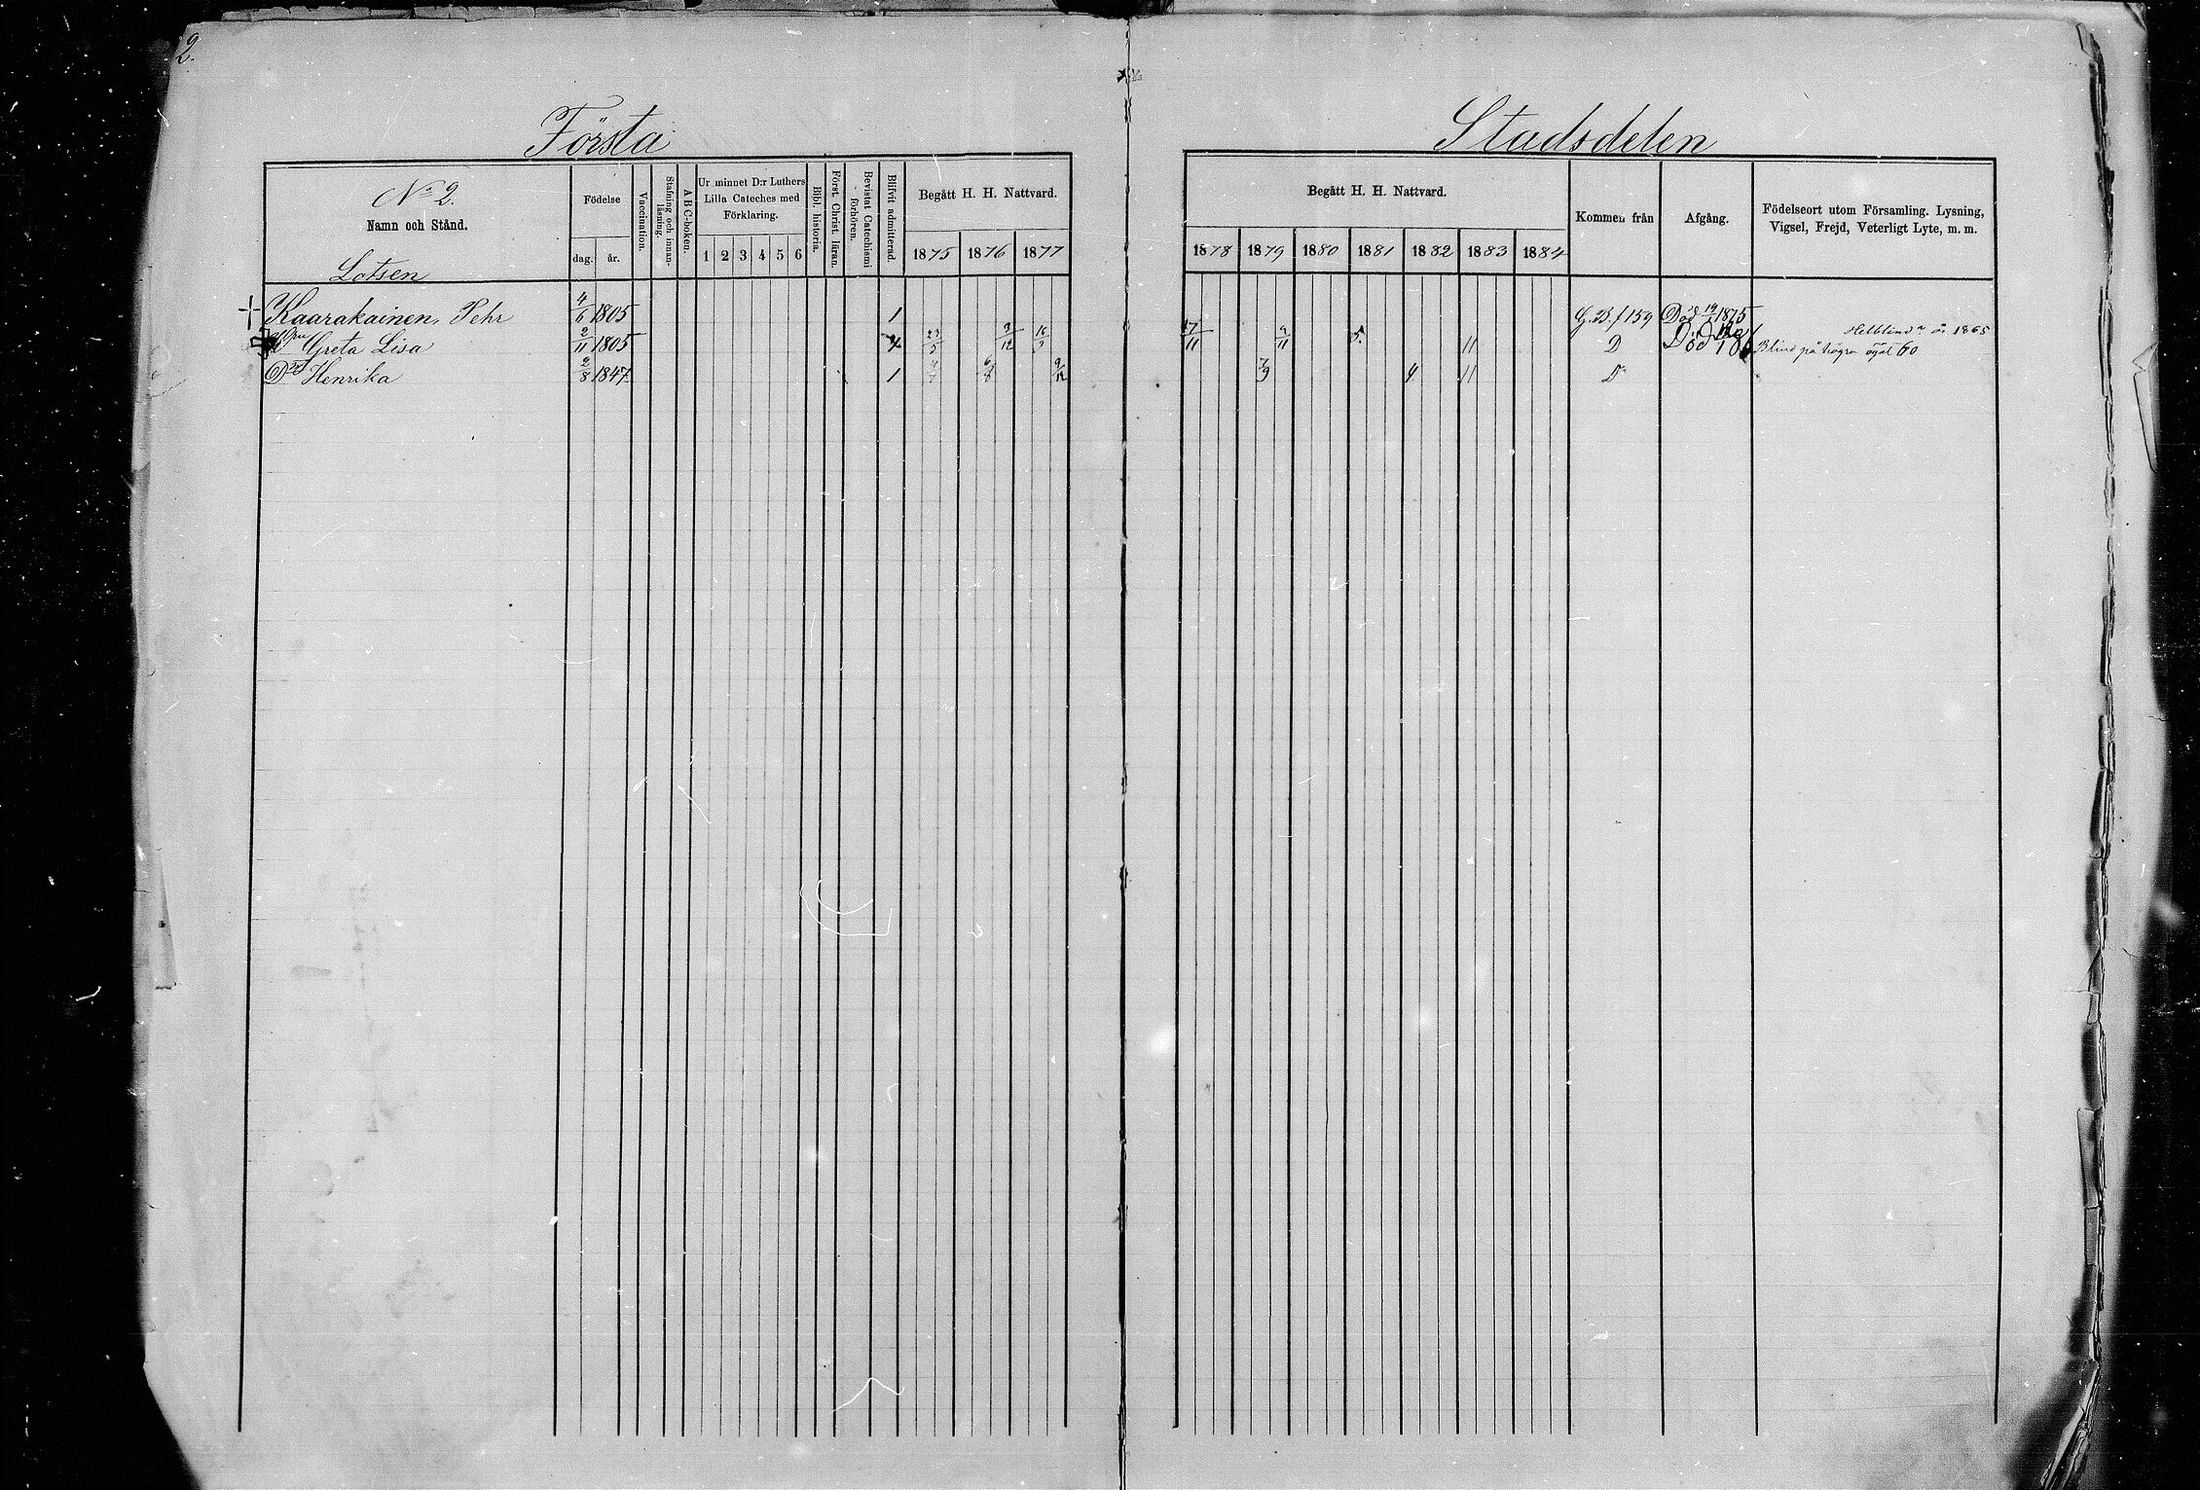 2.
Första Stadsdelen
No 2.
Namn och Stånd.
Födelse
dag. år.
Vaccination.
Stafning och innanläsning.
A B C-boken.
Ur minnet D:r Luthers Lilla Cateches med Förklaring.
1 2 3 4 5 6
Bibl. historia.
Först. Christ. läran.
Bevistat Catechismi förhören.
Blifvit admitterad.
Begått H. H. Nattvard.
1875 1876 1877
Begått H. H. Nattvard.
1878 1879 1880 1881 1882 1883 1884
Kommen från
Afgång.
Födelseort utom Församling. Lysning, Vigsel, Frejd, Veterligt Lyte, m. m.
Lotsen
Kaarakainen, Pehr 4/6 1805 1 G.B. f 159 Död 1875
Hu Greta Lisa 2/11 1805 23/5 3/12 17/11 4/11 5. 11 D Död Blind på högra ögat 60 Helblind år 1865
Dr Henrika 2/8 1847 1 9/12 7/9 4 11 Do